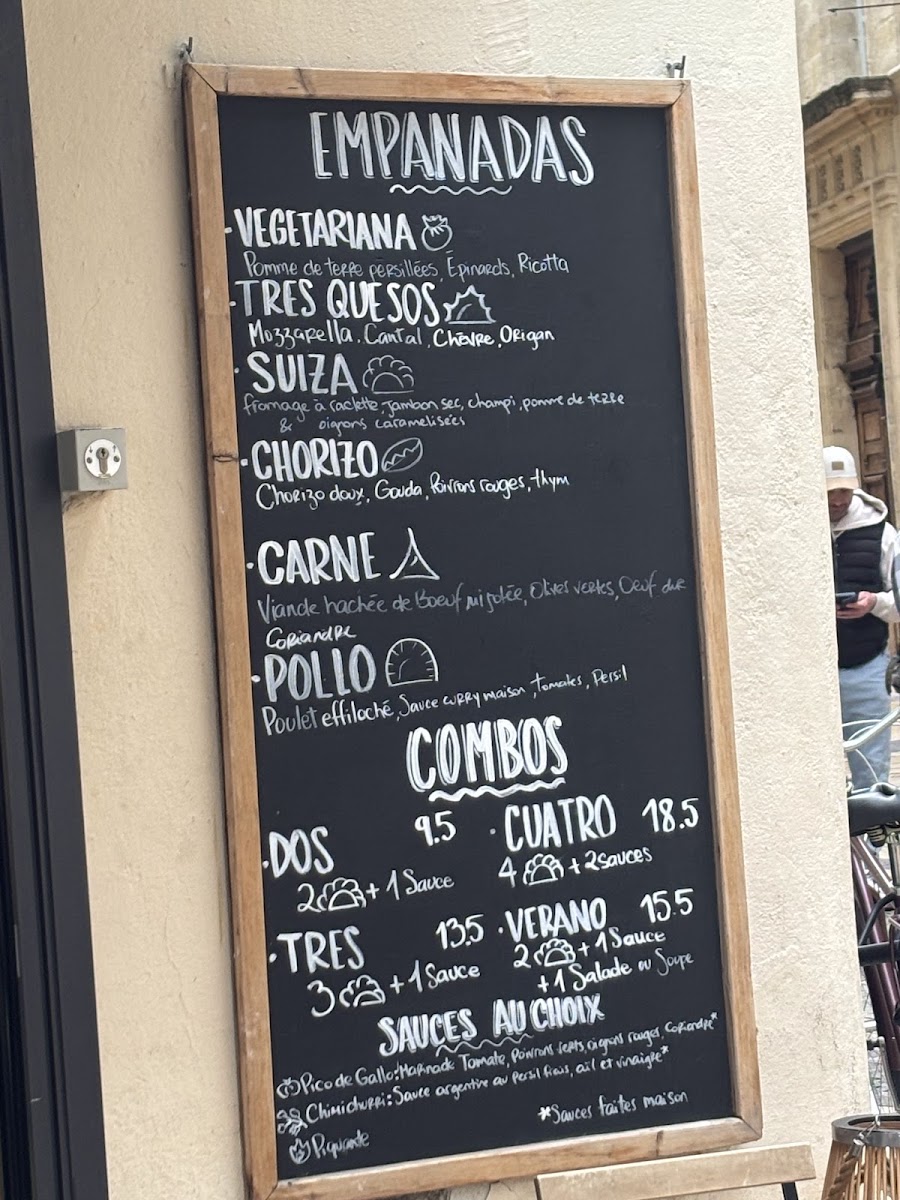 EMPANADAS
· VEGETARIANA
Pomme de terre persillées, Épinards, Ricotta
· TRES QUESOS
Mozzarella, Cantal, Chèvre, Origan
· SUIZA
fromage à raclette, jambon sec, champi, pomme de terre
& oignons caramelisées
· CHORIZO
Chorizo doux, Gouda, Poivrons rouges, thym
· CARNE
Viande hachée de Boeuf mijotée, Olives vertes, Oeuf dur
Coriandre
· POLLO
Poulet effiloché, Sauce curry maison, tomates, Persil
COMBOS
· DOS 9.5
2 + 1 Sauce
· CUATRO 18.5
4 + 2 sauces
· TRES 13.5
3 + 1 Sauce
· VERANO 15.5
2 + 1 Sauce
+ 1 Salade ou Soupe
SAUCES AU CHOIX
Pico de Gallo: Marinade Tomate, poivrons verts, oignons rouges, Coriandre*
Chimichurri: Sauce argentine au persil frais, ail et vinaigre*
Piquante
*Sauces faites maison